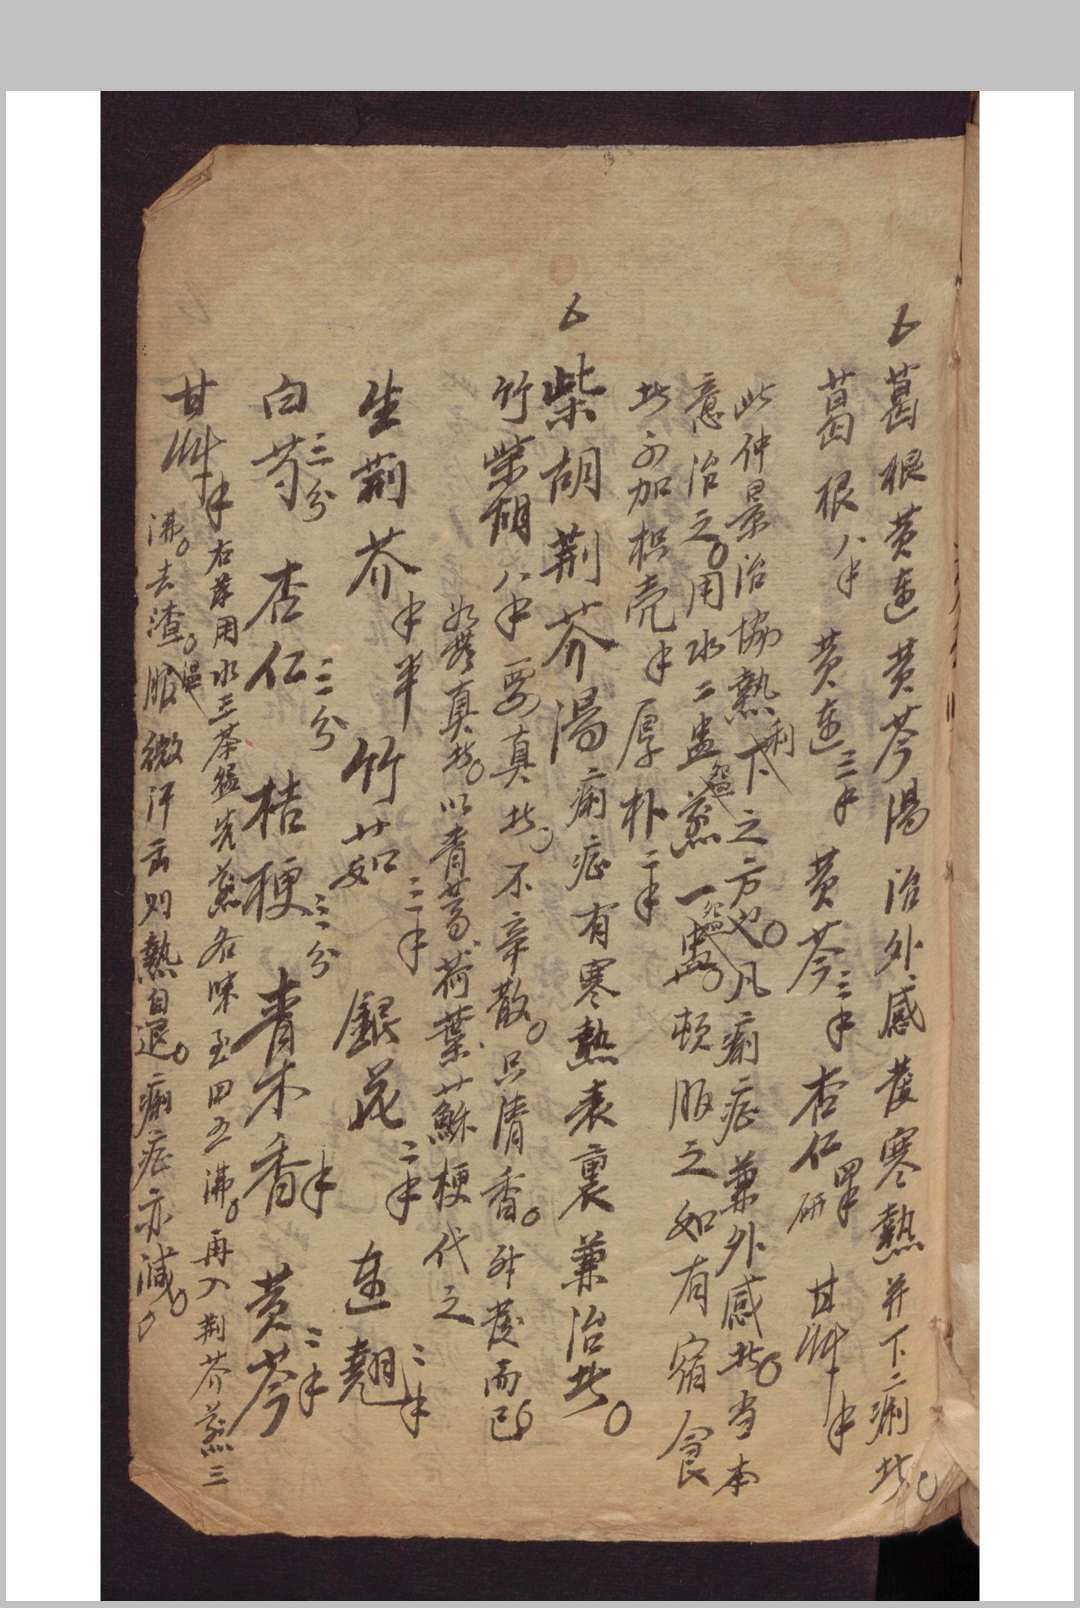 葛根黄連黄芩湯治外感发寒熱并下痢者
葛根八千 黄連三千 黄芩三千 杏仁四千研 甘艸千
此仲景治協熱下利之方也。凡痢症兼外感者。当本
意治之。用水二盅煎一盅。頓服之如有宿食
者可加枳壳千厚朴二千
柴胡荆芥湯痢症有寒熱表裏兼治者。
竹柴胡八千要真者。不辛散。只清香。升发而已
如无真者。以青蒿荷葉蘇梗代之
生荆芥千半 竹茹三千 銀花二千 連翘二千
白芍三分 杏仁三分 桔梗三分 青木香千 黄芩二千
甘艸千 右藥用水三茶盌先煎各味至四五沸。再入荆芥煎三
沸。去渣。温服微汗出则熱自退。痢症亦減。